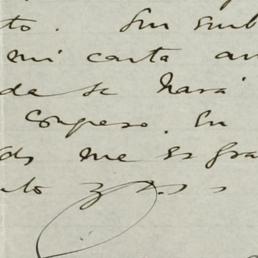 to. Sin emb
mi carta an
de se hará
Congreso. En
ds me es gra
to